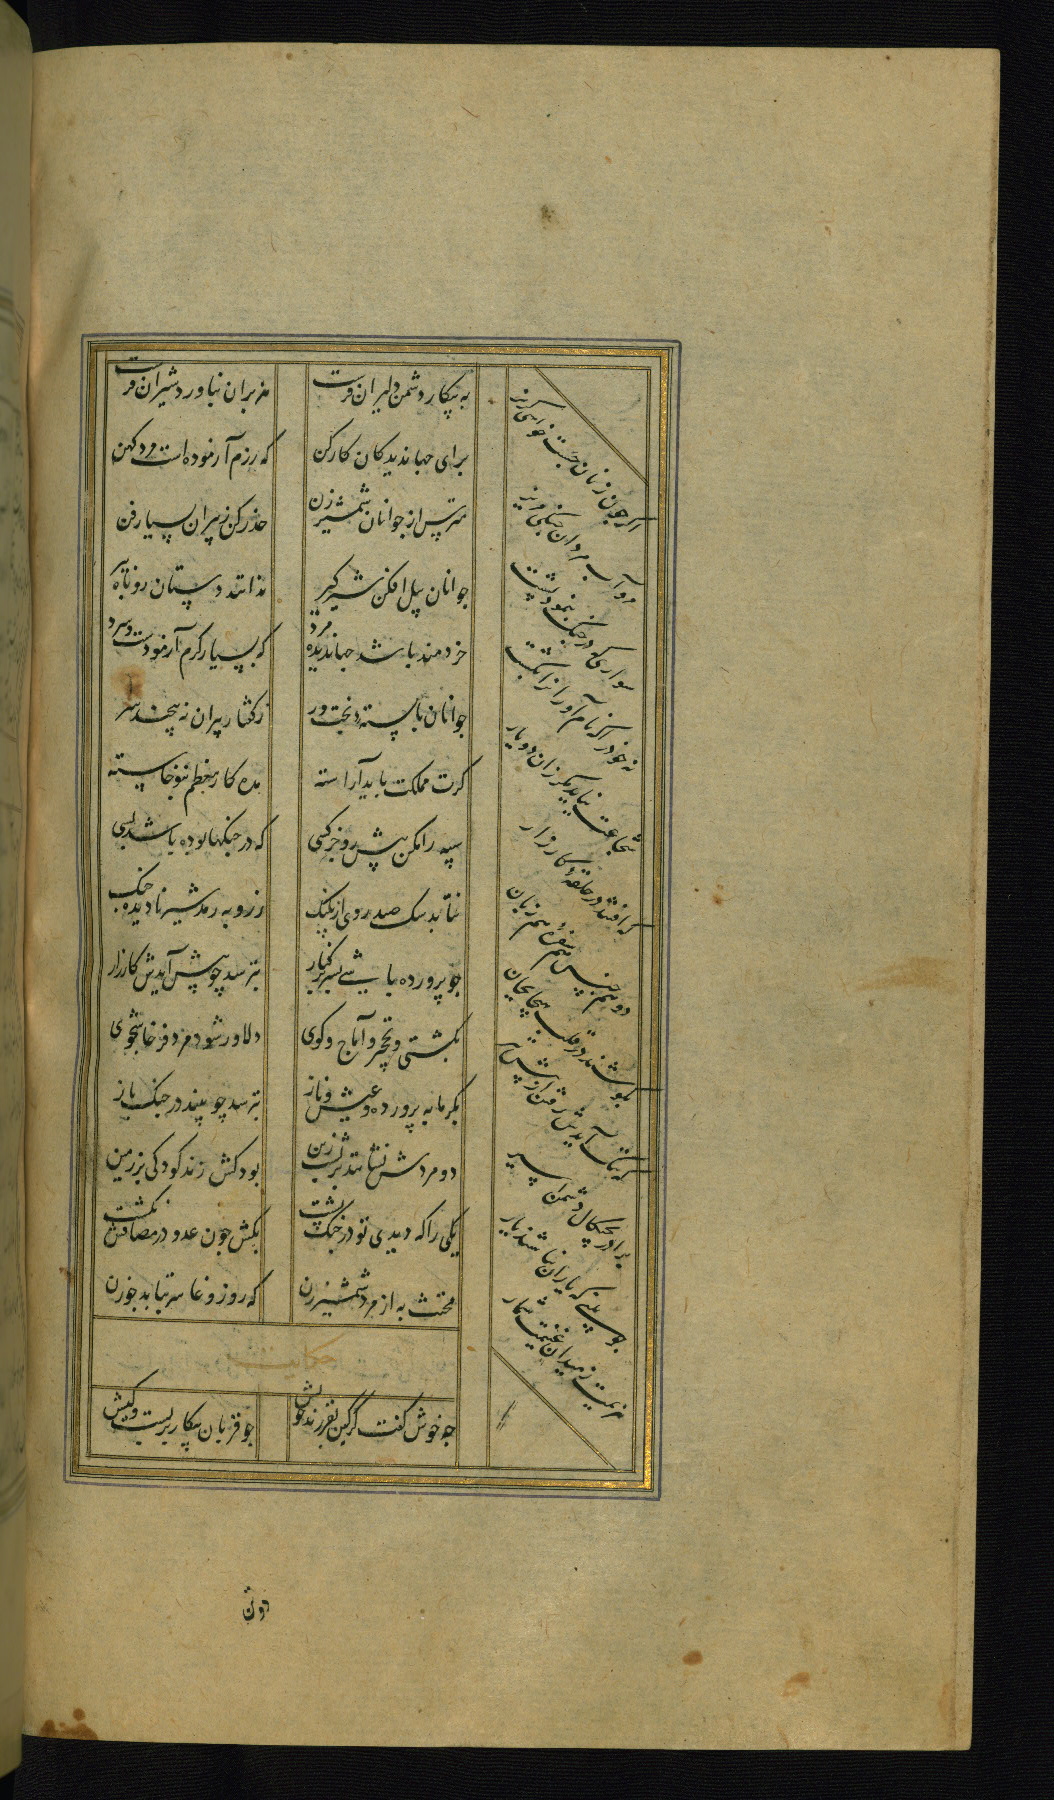 به پیکار دشمن دلیران فرست
هزبران نباورد شیران فرست
برای جهاندیدکان کارکن
که رزم آزموده است مرد کهن
مترس از جوانان شمشیر زن
حذر کن ز پیران بسیار فن
جوانان پیل افکن شیر کیر
ندانند دستان روباه
خردمند باشد جهاندیده مرد
که بسیار کرم آزمودست و سرد
جوانان بایسته و بخت ور
ز کفتار پیران نه پیچند سر
کرت مملکت باید آراسته
مده کار معظم بنوخاسته
سپه را مکن پیش رو جز کسی
که در جنکها بوده باشد بسی
نتابد سک صید روی از پلنک
ز روبه رمد شیر نادیده جنک
چو پرورده باشد پسر
بترسد چو پیش آیدش کارزار
بکشتی و نخچیر و آماج و کوی
دلاور شود مرد پرخاشجوی
بکرمابه پرورده و عیش و ناز
بترسد چو بیند در جنک باز
دو مردش نشانند بر پشت زین
بود کش زند کودکی بر زمین
یکی را که دیدی تو در جنک پشت
بکش چون عدو در مصافش نکشت
مخنث به از مرد شمشیر زن
که روز وغا سر بتابد چو زن
چه خوش کفت کرکین بفرزند خویش
چو قربان پیکار بربست و کیش
اکر چون زنان جست خواهی کریز
مرو آب مردان جنکی مریز
سواری که در جنک بنمود پشت
نه خود را که نام آوران را بکشت
شجاعت نیاید مکر زان دو یار
که افتند در حلقه کارزار
دو هم جنس هم سفره هم زبان
بکوشند در قلب هیجا بجان
که ننک آیدش رفتن از پیش تیر
برادر بچنکال دشمن اسیر
چو بینی که یاران نباشند یار
هزیمت ز میدان غنیمت شمار
دو تن